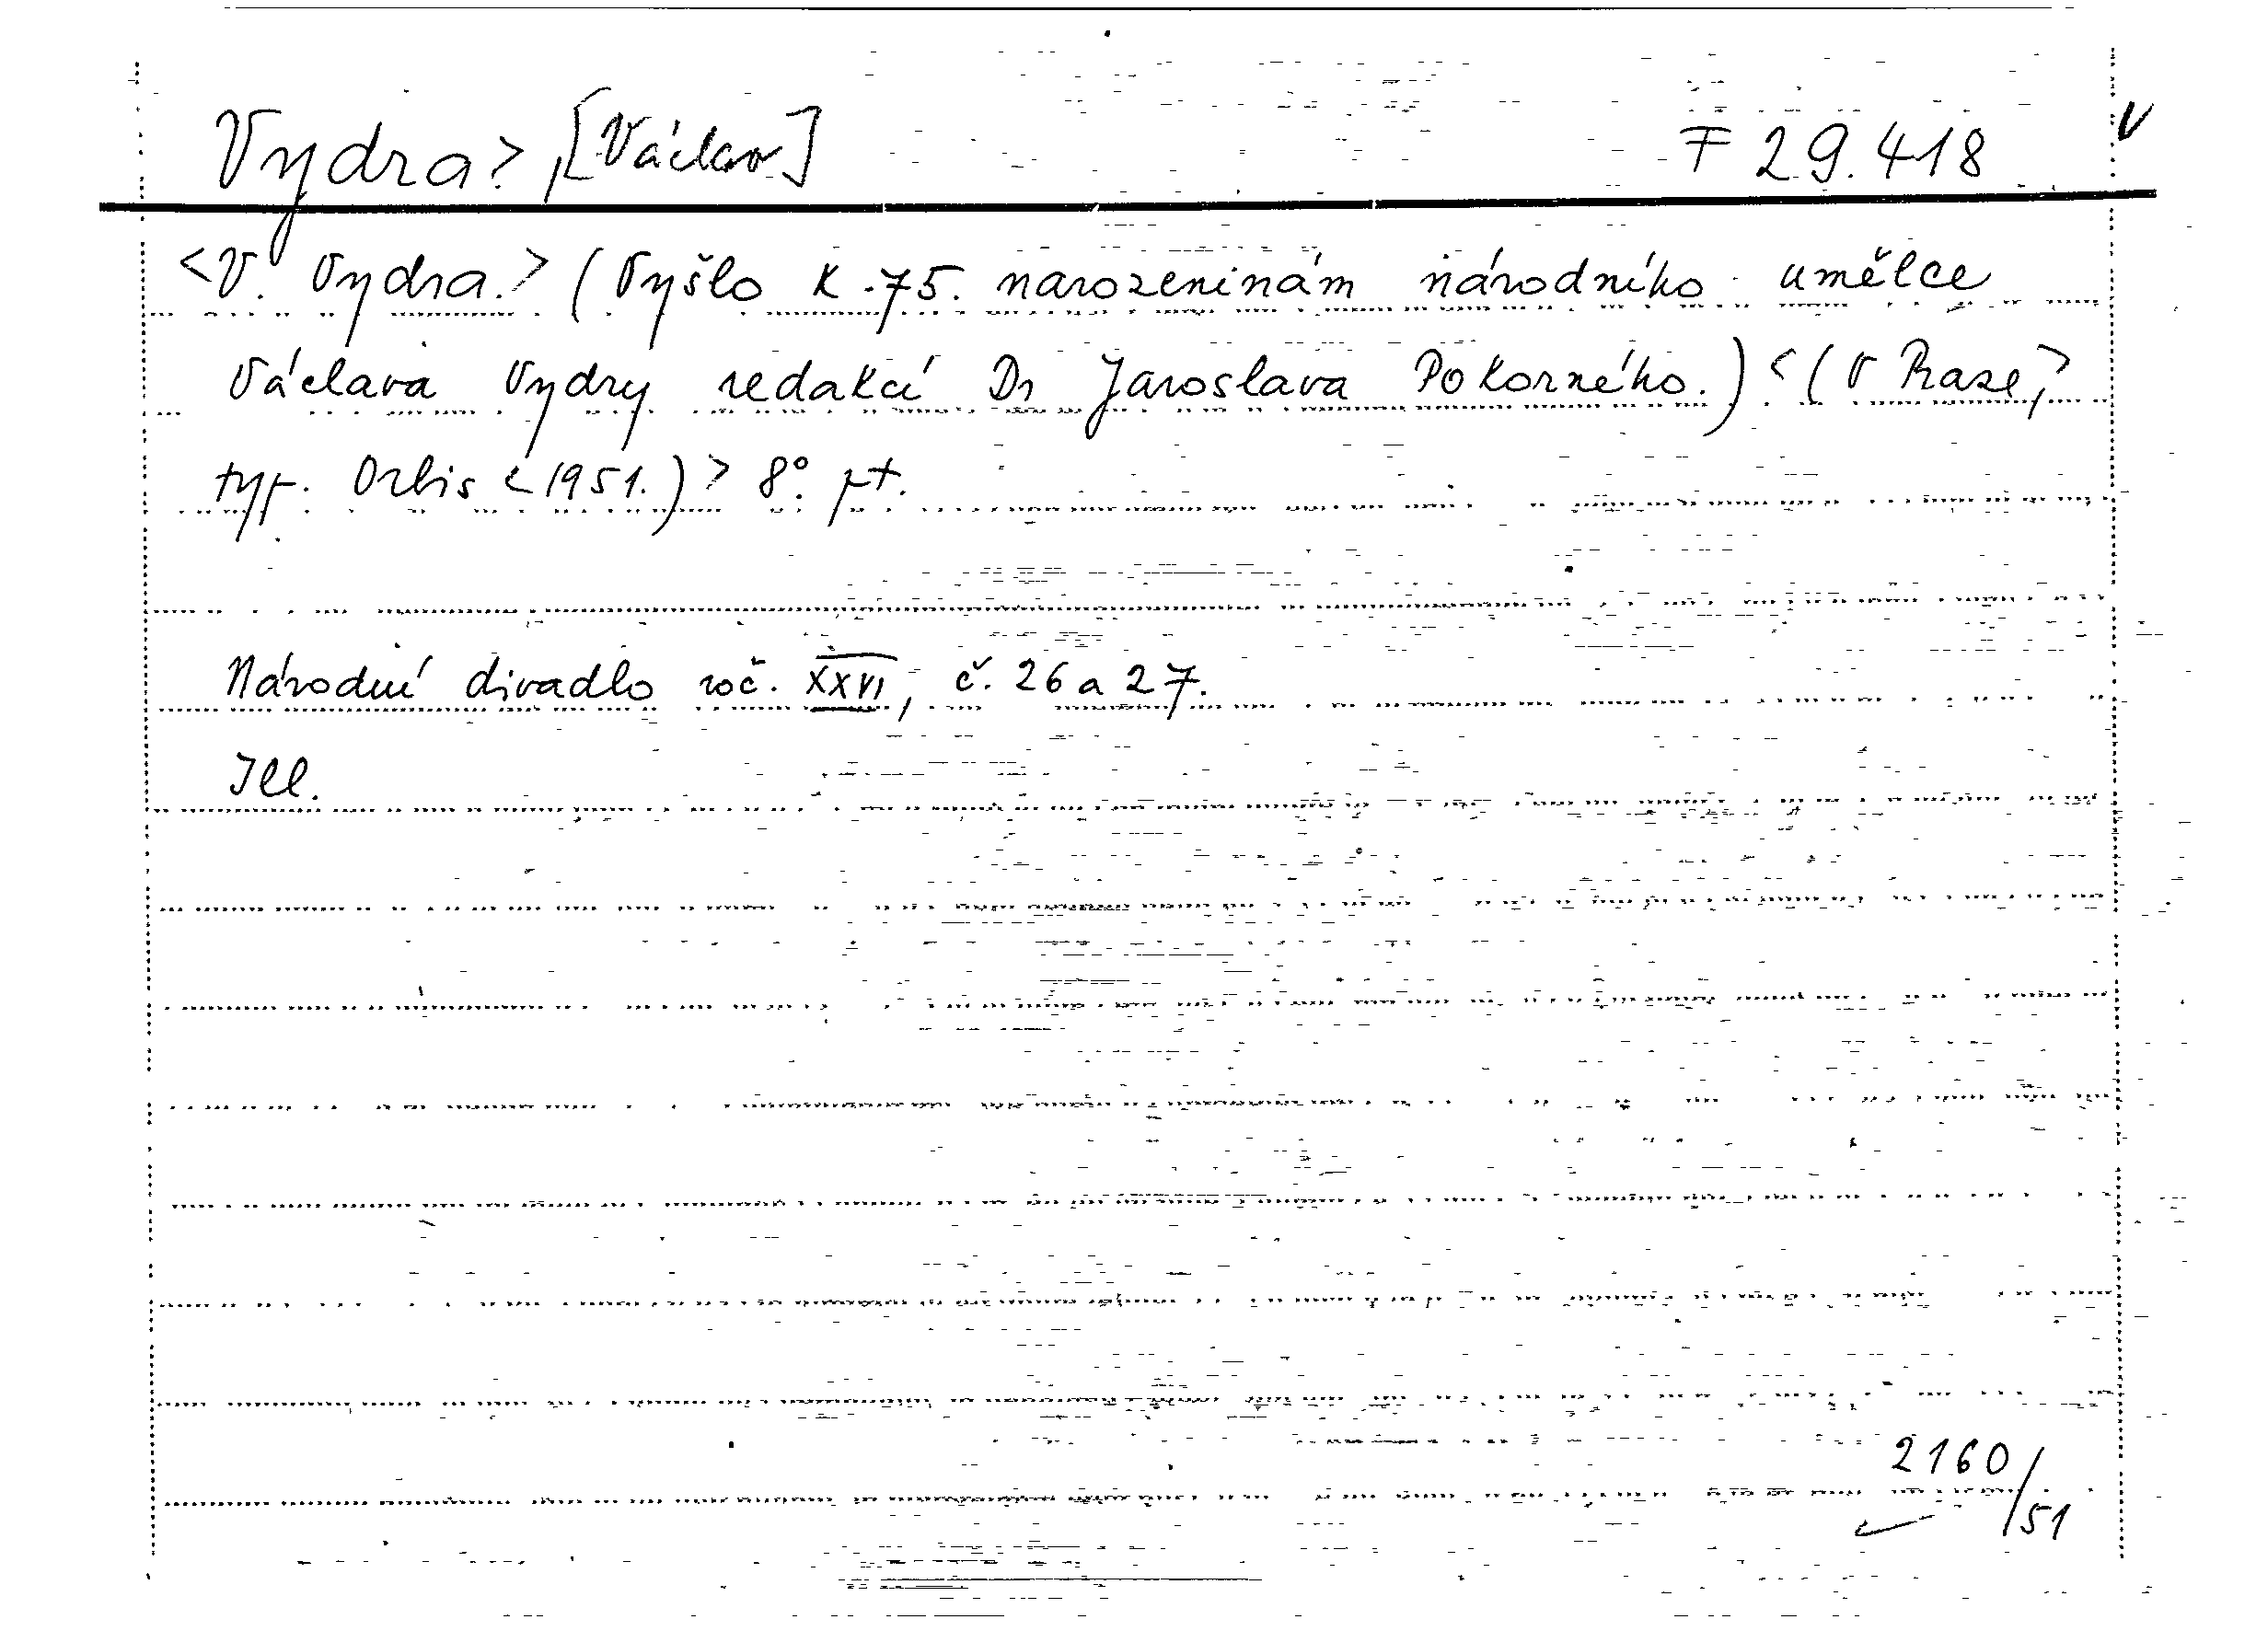 Vydra>, [Václav] F 29.418 V
<V. Vydra.> (Vyšlo k 75. narozeninám národního umělce
Václava Vydry redakcí Dr Jaroslava Pokorného.) <(V Praze,>
typ. Orbis <1951.)> 8°. pt.
Národní divadlo roč. XXVI, č. 26 a 27.
Ill.
2160/51